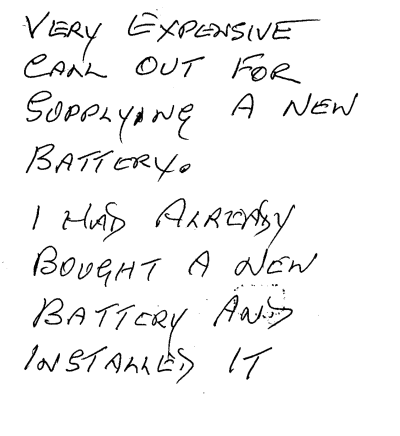 VERY EXPENSIVE
CALL OUT FOR
SUPPLYING A NEW
BATTERY.
I HAD ALREADY
BOUGHT A NEW
BATTERY AND
INSTALLED IT